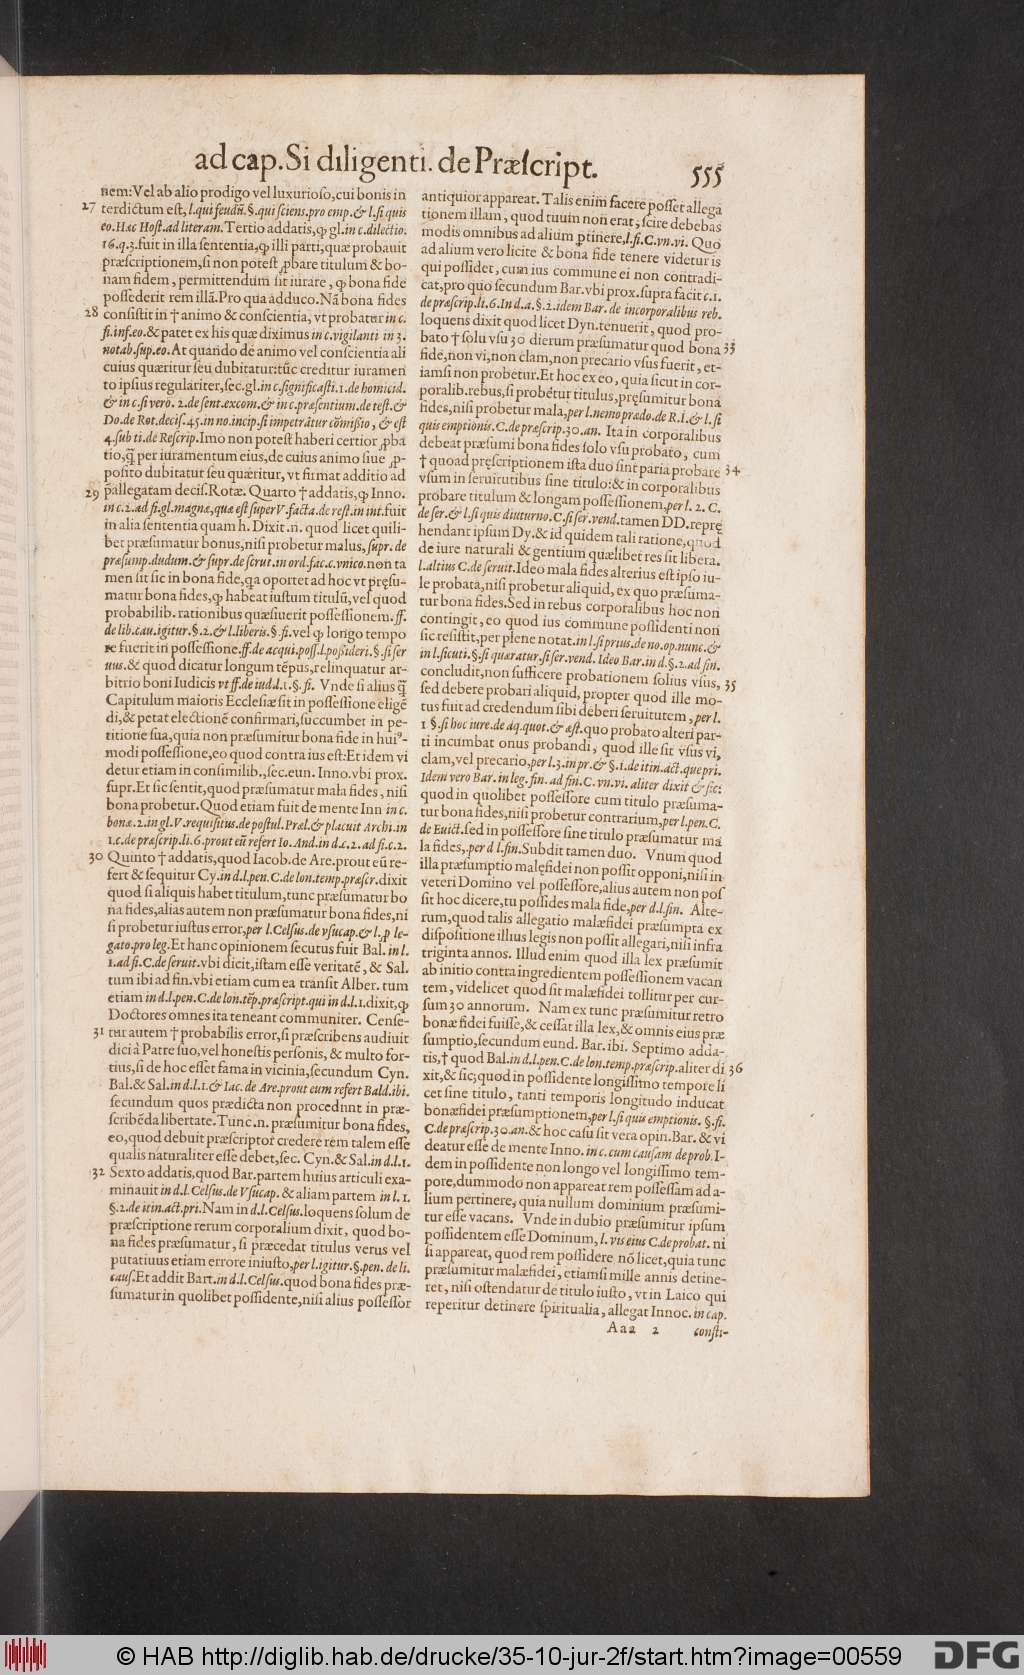 ad cap. Si diligenti. de Præſcript.
555
nem: Vel ab alio prodigo vel luxurioſo, cui bonis in
27 terdictum eſt, l. qui feudū. §. qui ſciens. pro emp. & l. ſi quis
eo. Hac Hoſt. ad literam. Tertio addatis, ꝙ gl. in c. dilectio.
16. q. 3. fuit in illa ſententia, ꝙ illi parti, quæ probauit
præſcriptionem, ſi non poteſt ꝓbare titulum & bo-
nam fidem, permittendum ſit iurare, ꝙ bona fide
poſſederit rem illā. Pro qua adduco. Nā bona fides
28 conſiſtit in † animo & conſcientia, vt probatur in c.
fi. inf. eo. & patet ex his quæ diximus in c. vigilanti in 3.
notab. ſup. eo. At quando de animo vel conſcientia ali
cuius quæritur ſeu dubitatur: tūc creditur iuramen
to ipſius regulariter, ſec. gl. in c. ſignificaſti. 1. de homicid.
& in c. ſi vero. 2. de ſent. excom. & in c. præſentium. de teſt. &
Do. de Rot. deciſ. 45. in no. incip. ſi impetrātur cōmiſſio, & eſt
4. ſub ti. de Reſcrip. Imo non poteſt haberi certior ꝓba
tio, q̃ per iuramentum eius, de cuius animo ſiue ꝓ-
poſito dubitatur ſeu quæritur, vt firmat additio ad
29 p̄allegatam deciſ. Rotæ. Quarto † addatis, ꝙ Inno.
in c. 2. ad fi. gl. magnæ, quæ eſt ſuper V. facta. de reſt. in int. fuit
in alia ſententia quam h. Dixit .n. quod licet quili-
bet præſumatur bonus, niſi probetur malus, ſupr. de
præſump. dudum. & ſupr. de ſcrut. in ord. fac. c. vnico. non ta
men ſit ſic in bona fide, qa oportet ad hoc vt pręſu-
matur bona fides, ꝙ habeat iuſtum titulū, vel quod
probabilib. rationibus quæſiuerit poſſeſſionem. ff.
de lib. cau. igitur. §. 2. & l. liberis. §. fi. vel ꝙ longo tempo
re fuerit in poſſeſſione. ff. de acqui. poſſ. l. poſſideri. §. ſi ſer
uus. & quod dicatur longum tēpus, relinquatur ar-
bitrio boni Iudicis vt ff. de iud. l. 1. §. fi. Vnde ſi alius q̃
Capitulum maioris Eccleſiæ ſit in poſſeſſione eligē
di, & petat electionē confirmari, ſuccumbet in pe-
titione ſua, quia non præſumitur bona fide in huiꝰ-
modi poſſeſſione, eo quod contra ius eſt: Et idem vi
detur etiam in conſimilib., ſec. eun. Inno. vbi prox.
ſupr. Et ſic ſentit, quod præſumatur mala fides, niſi
bona probetur. Quod etiam fuit de mente Inn in c.
bonæ. 2. in gl. V. requiſitus. de poſtul. Præl. & placuit Archi. in
1. c. de præſcrip. li. 6. prout eū refert Io. And. in d. c. 2. ad fi. c. 2.
30 Quinto † addatis, quod Iacob. de Are. prout eū re-
fert & ſequitur Cy. in d. l. pen. C. de lon. temp. præſcr. dixit
quod ſi aliquis habet titulum, tunc præſumatur bo
na fides, alias autem non præſumatur bona fides, ni
ſi probetur iuſtus error, per l. Celſus. de vſucap. & l. ꝓ le-
gato. pro leg. Et hanc opinionem ſecutus fuit Bal. in l.
1. ad fi. C. de ſeruit. vbi dicit, iſtam eſſe veritatē, & Sal.
tum ibi ad fin. vbi etiam cum ea tranſit Alber. tum
etiam in d. l. pen. C. de lon. tēp. præſcript. qui in d. l. 1. dixit, ꝙ
Doctores omnes ita teneant communiter. Cenſe-
31 tur autem † probabilis error, ſi præſcribens audiuit
dici à Patre ſuo, vel honeſtis perſonis, & multo for-
tius, ſi de hoc eſſet fama in vicinia, ſecundum Cyn.
Bal. & Sal. in d. l. 1. & Iac. de Are. prout eum refert Bald. ibi.
ſecundum quos prædicta non procednnt in præ-
ſcribēda libertate. Tunc .n. præſumitur bona fides,
eo, quod debuit præſcriptor credere rem talem eſſe
qualis naturaliter eſſe debet, ſec. Cyn. & Sal. in d. l. 1.
32 Sexto addatis, quod Bar. partem huius articuli exa-
minauit in d. l. Celſus. de Vſucap. & aliam partem in l. 1.
§. 2. de itin. act. pri. Nam in d. l. Celſus. loquens ſolum de
præſcriptione rerum corporalium dixit, quod bo-
na fides præſumatur, ſi præcedat titulus verus vel
putatiuus etiam errore iniuſto, per l. igitur. §. pen. de li.
cauſ. Et addit Bart. in d. l. Celſus. quod bona fides præ-
ſumatur in quolibet poſſidente, niſi alius poſſeſſor
antiquior appareat. Talis enim facere poſſet allega
tionem illam, quod tuum non erat, ſcire debebas
modis omnibus ad alium ꝑtinere, l. fi. C. vn. vi. Quo
ad alium vero licite & bona fide tenere videtur is
qui poſſidet, cum ius commune ei non contradi-
cat, pro quo ſecundum Bar. vbi prox. ſupra facit c. 1.
de præſcrip. li. 6. In d. a. §. 2. idem Bar. de incorporalibus reb.
loquens dixit quod licet Dyn. tenuerit, quod pro-
bato † ſolu vſu 30 dierum præſumatur quod bona 33
fide, non vi, non clam, non precario vſus fuerit, et-
iamſi non probetur. Et hoc ex eo, quia ſicut in cor-
poralib. rebus, ſi probetur titulus, pręſumitur bona
fides, niſi probetur mala, per l. nemo prædo. de R. I. & l. ſi
quis emptionis. C. de præſcrip. 30. an. Ita in corporalibus
debeat præſumi bona fides ſolo vſu probato, cum
† quoad pręſcriptionem iſta duo ſint paria probare 34
vſum in ſeruitutibus ſine titulo: & in corporalibus
probare titulum & longam poſſeſſionem, per l. 2. C.
de ſer. & l. ſi quis diuturno. C. ſi ſer. vend. tamen DD. repre
hendant ipſum Dy. & id quidem tali ratione, quod
de iure naturali & gentium quælibet res ſit libera.
l. altius C. de ſeruit. Ideo mala fides alterius eſt ipſo iu-
le probata, niſi probetur aliquid, ex quo præſuma-
tur bona fides. Sed in rebus corporalibus hoc non
contingit, eo quod ius commune poſſidenti non
ſic reſiſtit, per plene notat. in l. ſi prius. de no. op. nunc. &
in l. ſicuti. §. ſi quæratur. ſi ſer. vend. Ideo Bar. in d. §. 2. ad fin.
concludit, non ſufficere probationem ſolius vſus, 35
ſed debere probari aliquid, propter quod ille mo-
tus fuit ad credendum ſibi deberi ſeruitutem, per l.
1 §. ſi hoc iure. de aq. quot. & æſt. quo probato alteri par-
ti incumbat onus probandi, quod ille ſit vſus vi,
clam, vel precario, per l. 3. in pr. & §. 1. de itin. act. que pri.
Idem vero Bar. in leg. fin. ad fin. C. vn. vi. aliter dixit & ſic:
quod in quolibet poſſeſſore cum titulo præſuma-
tur bona fides, niſi probetur contrarium, per l. pen. C.
de Euict. ſed in poſſeſſore ſine titulo præſumatur ma
la fides, per d l. fin. Subdit tamen duo. Vnum quod
illa præſumptio malęfidei non poſſit opponi, niſi in
veteri Domino vel poſſeſſore, alius autem non poſ
ſit hoc dicere, tu poſſides mala fide, per d. l. fin. Alte-
rum, quod talis allegatio malæfidei præſumpta ex
diſpoſitione illius legis non poſſit allegari, niſi infra
triginta annos. Illud enim quod illa lex præſumit
ab initio contra ingredientem poſſeſſionem vacan
tem, videlicet quod ſit malæfidei tollitur per cur-
ſum 30 annorum. Nam ex tunc præſumitur retro
bonæ fidei fuiſſe, & ceſſat illa lex, & omnis eius præ
ſumptio, ſecundum eund. Bar. ibi. Septimo adda-
tis, † quod Bal. in d. l. pen. C. de lon. temp. præſcrip. aliter di 36
xit, & ſic; quod in poſſidente longiſſimo tempore li
cet ſine titulo, tanti temporis longitudo inducat
bonæfidei præſumptionem, per l. ſi quis emptionis. §. fi.
C. de præſcrip. 30. an. & hoc caſu ſit vera opin. Bar. & vi
deatur eſſe de mente Inno. in c. cum cauſam de prob. I-
dem in poſſidente non longo vel longiſſimo tem-
pore, dummodo non appareat rem poſſeſſam ad a-
lium pertinere, quia nullum dominium præſumi-
tur eſſe vacans. Vnde in dubio præſumitur ipſum
poſſidentem eſſe Dominum, l. vis eius C. de probat. ni
ſi appareat, quod rem poſſidere nō licet, quia tunc
præſumitur malæfidei, etiamſi mille annis detine-
ret, niſi oſtendatur de titulo iuſto, vt in Laico qui
reperitur detinere ſpiritualia, allegat Innoc. in cap.
Aaa 2 conſti-
© HAB http://diglib.hab.de/drucke/35-10-jur-2f/start.htm?image=00559
DFG